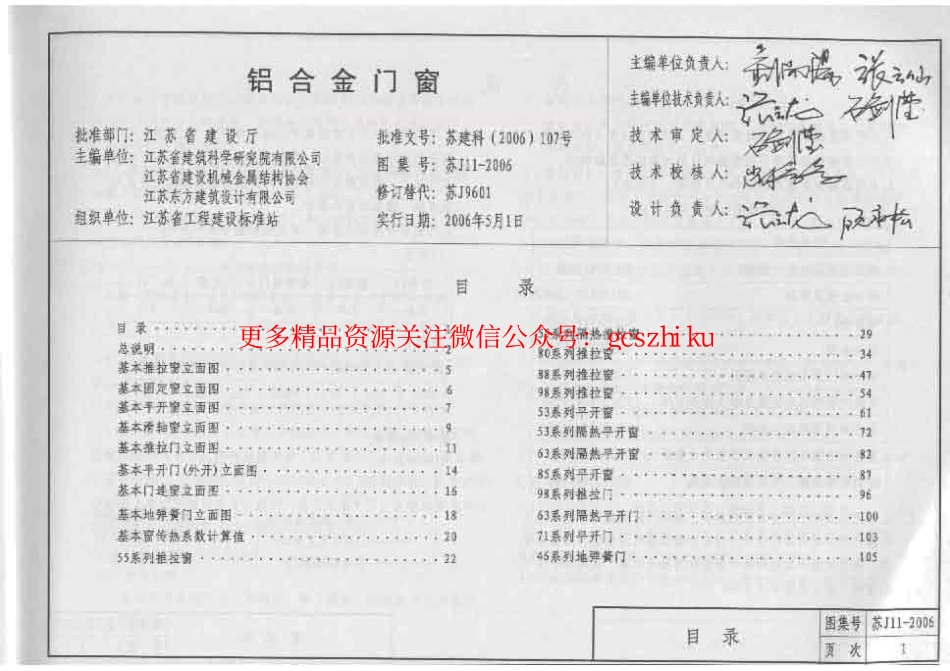 铝合金门窗
批准部门: 江苏省建设厅
主编单位: 江苏省建筑科学研究院有限公司
江苏省建设机械金属结构协会
江苏东方建筑设计有限公司
组织单位: 江苏省工程建设标准站
批准文号: 苏建科(2006)107号
图集号: 苏J11-2006
修订替代: 苏J9601
实行日期: 2006年5月1日
主编单位负责人:
主编单位技术负责人:
技术审定人:
技术校核人:
设计负责人:
目 录
更多精品资源关注微信公众号：gcszhiku
目录
总说明 2
基本推拉窗立面图 5
基本固定窗立面图 6
基本平开窗立面图 7
基本滑轴窗立面图 9
基本推拉门立面图 11
基本平开门(外开)立面图 14
基本门连窗立面图 16
基本地弹簧门立面图 18
基本窗传热系数计算值 20
55系列推拉窗 22
系列隔热推拉窗 29
80系列推拉窗 34
88系列推拉窗 47
98系列推拉窗 54
53系列平开窗 61
53系列隔热平开窗 72
63系列隔热平开窗 82
85系列平开窗 87
98系列推拉门 96
63系列隔热平开门 100
71系列平开门 103
46系列地弹簧门 105
目 录
图集号 苏J11-2006
页次 1